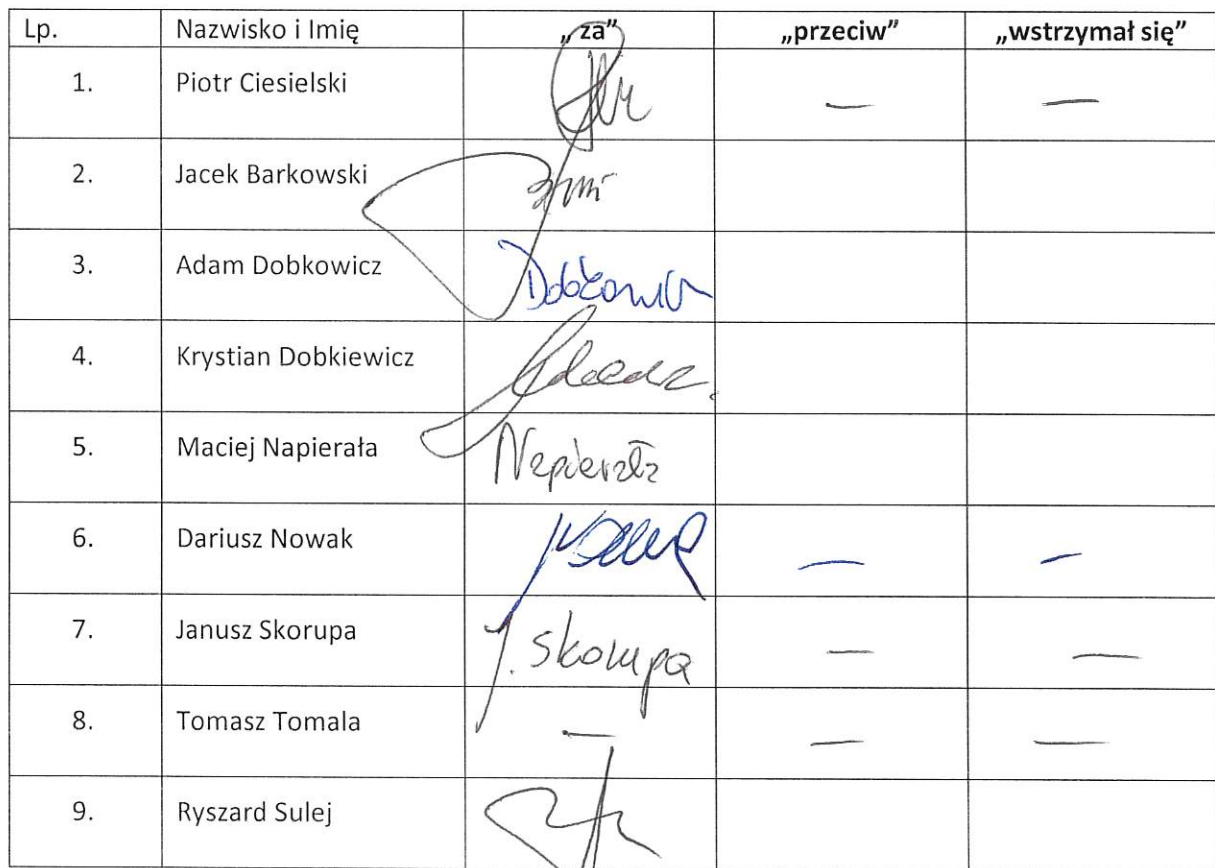 Lp. Nazwisko i Imię „za” „przeciw” „wstrzymał się”
1. Piotr Ciesielski — —
2. Jacek Barkowski
3. Adam Dobkowicz
4. Krystian Dobkiewicz
5. Maciej Napierała Napierała
6. Dariusz Nowak — —
7. Janusz Skorupa J. Skorupa — —
8. Tomasz Tomala — — —
9. Ryszard Sulej